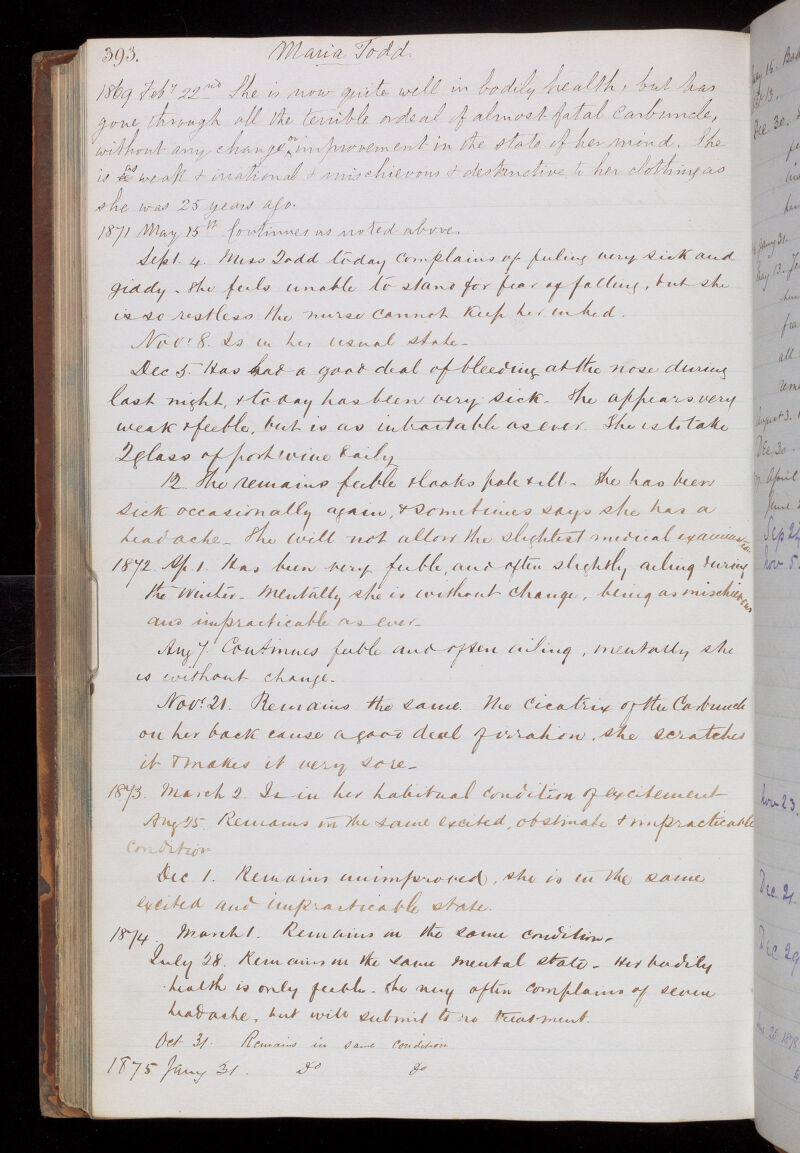 393. Maria Todd.
1869 Feby 22nd She is now quite well in bodily health, but has
gone through all the terrible ordeal of almost fatal Carbuncle,
without any change or improvement in the state of her mind. She
is as weak & irrational & mischievous & destructive to her clothing as
she was 25 years ago.
1871 May 15th Continues as noted above.
Sept. 4. Miss Todd today complains of feeling very sick and
giddy - She feels unable to stand for fear of falling, but she
is so restless the nurse cannot keep her in bed.
Novr 8. Is in her usual state -
Dec 5. Has had a good deal of bleeding at the nose during
last night, & today has been very sick - She appears very
weak & feeble, but is as intractable as ever. She is to take
2 glass of port wine daily
12 She remains feeble & looks pale & ill - She has been
sick occasionally again, & sometimes says she has a
headache - She will not allow the slightest medical examination
1872. Ap. 1. Has been very feeble, and often slightly ailing during
the winter - Mentally she is without change, being as mischievous
and impracticable as ever -
Aug 7. Continues feeble and often ailing, mentally she
is without change -
Novr 21. Remains the same. The Cicatrix of the Carbuncle
on her back cause a good deal of irration, she scratches
it & makes it very sore -
1873. March 2. Is in her habitual condition of excitement
Aug 25. Remains in the same excited, obstinate & impracticable
condition
Dec 1. Remains unimproved, she is in the same
excited and impracticable state.
1874. March 1. Remains in the same condition.
July 28. Remains in the same mental state - Her bodily
health is only feeble - She very often complains of severe
headache, but will submit to no treatment.
Oct 31. Remains in same condition
1875 Jany 31. Do Do
Dec 30.
Jany 31.
August 3.
Dec 30
April
June
Sep 24
Nov 5.
Nov 23.
Dec 21.
Dec 29